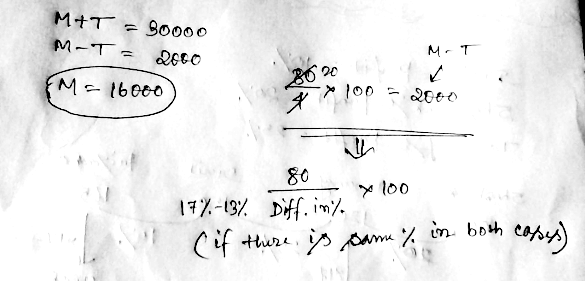 M+T = 30000
M-T = 2000
M = 16000
M-T
80 20
4 × 100 = 2000
80
17%-13% Diff. in% × 100
(if there is same % in both cases)